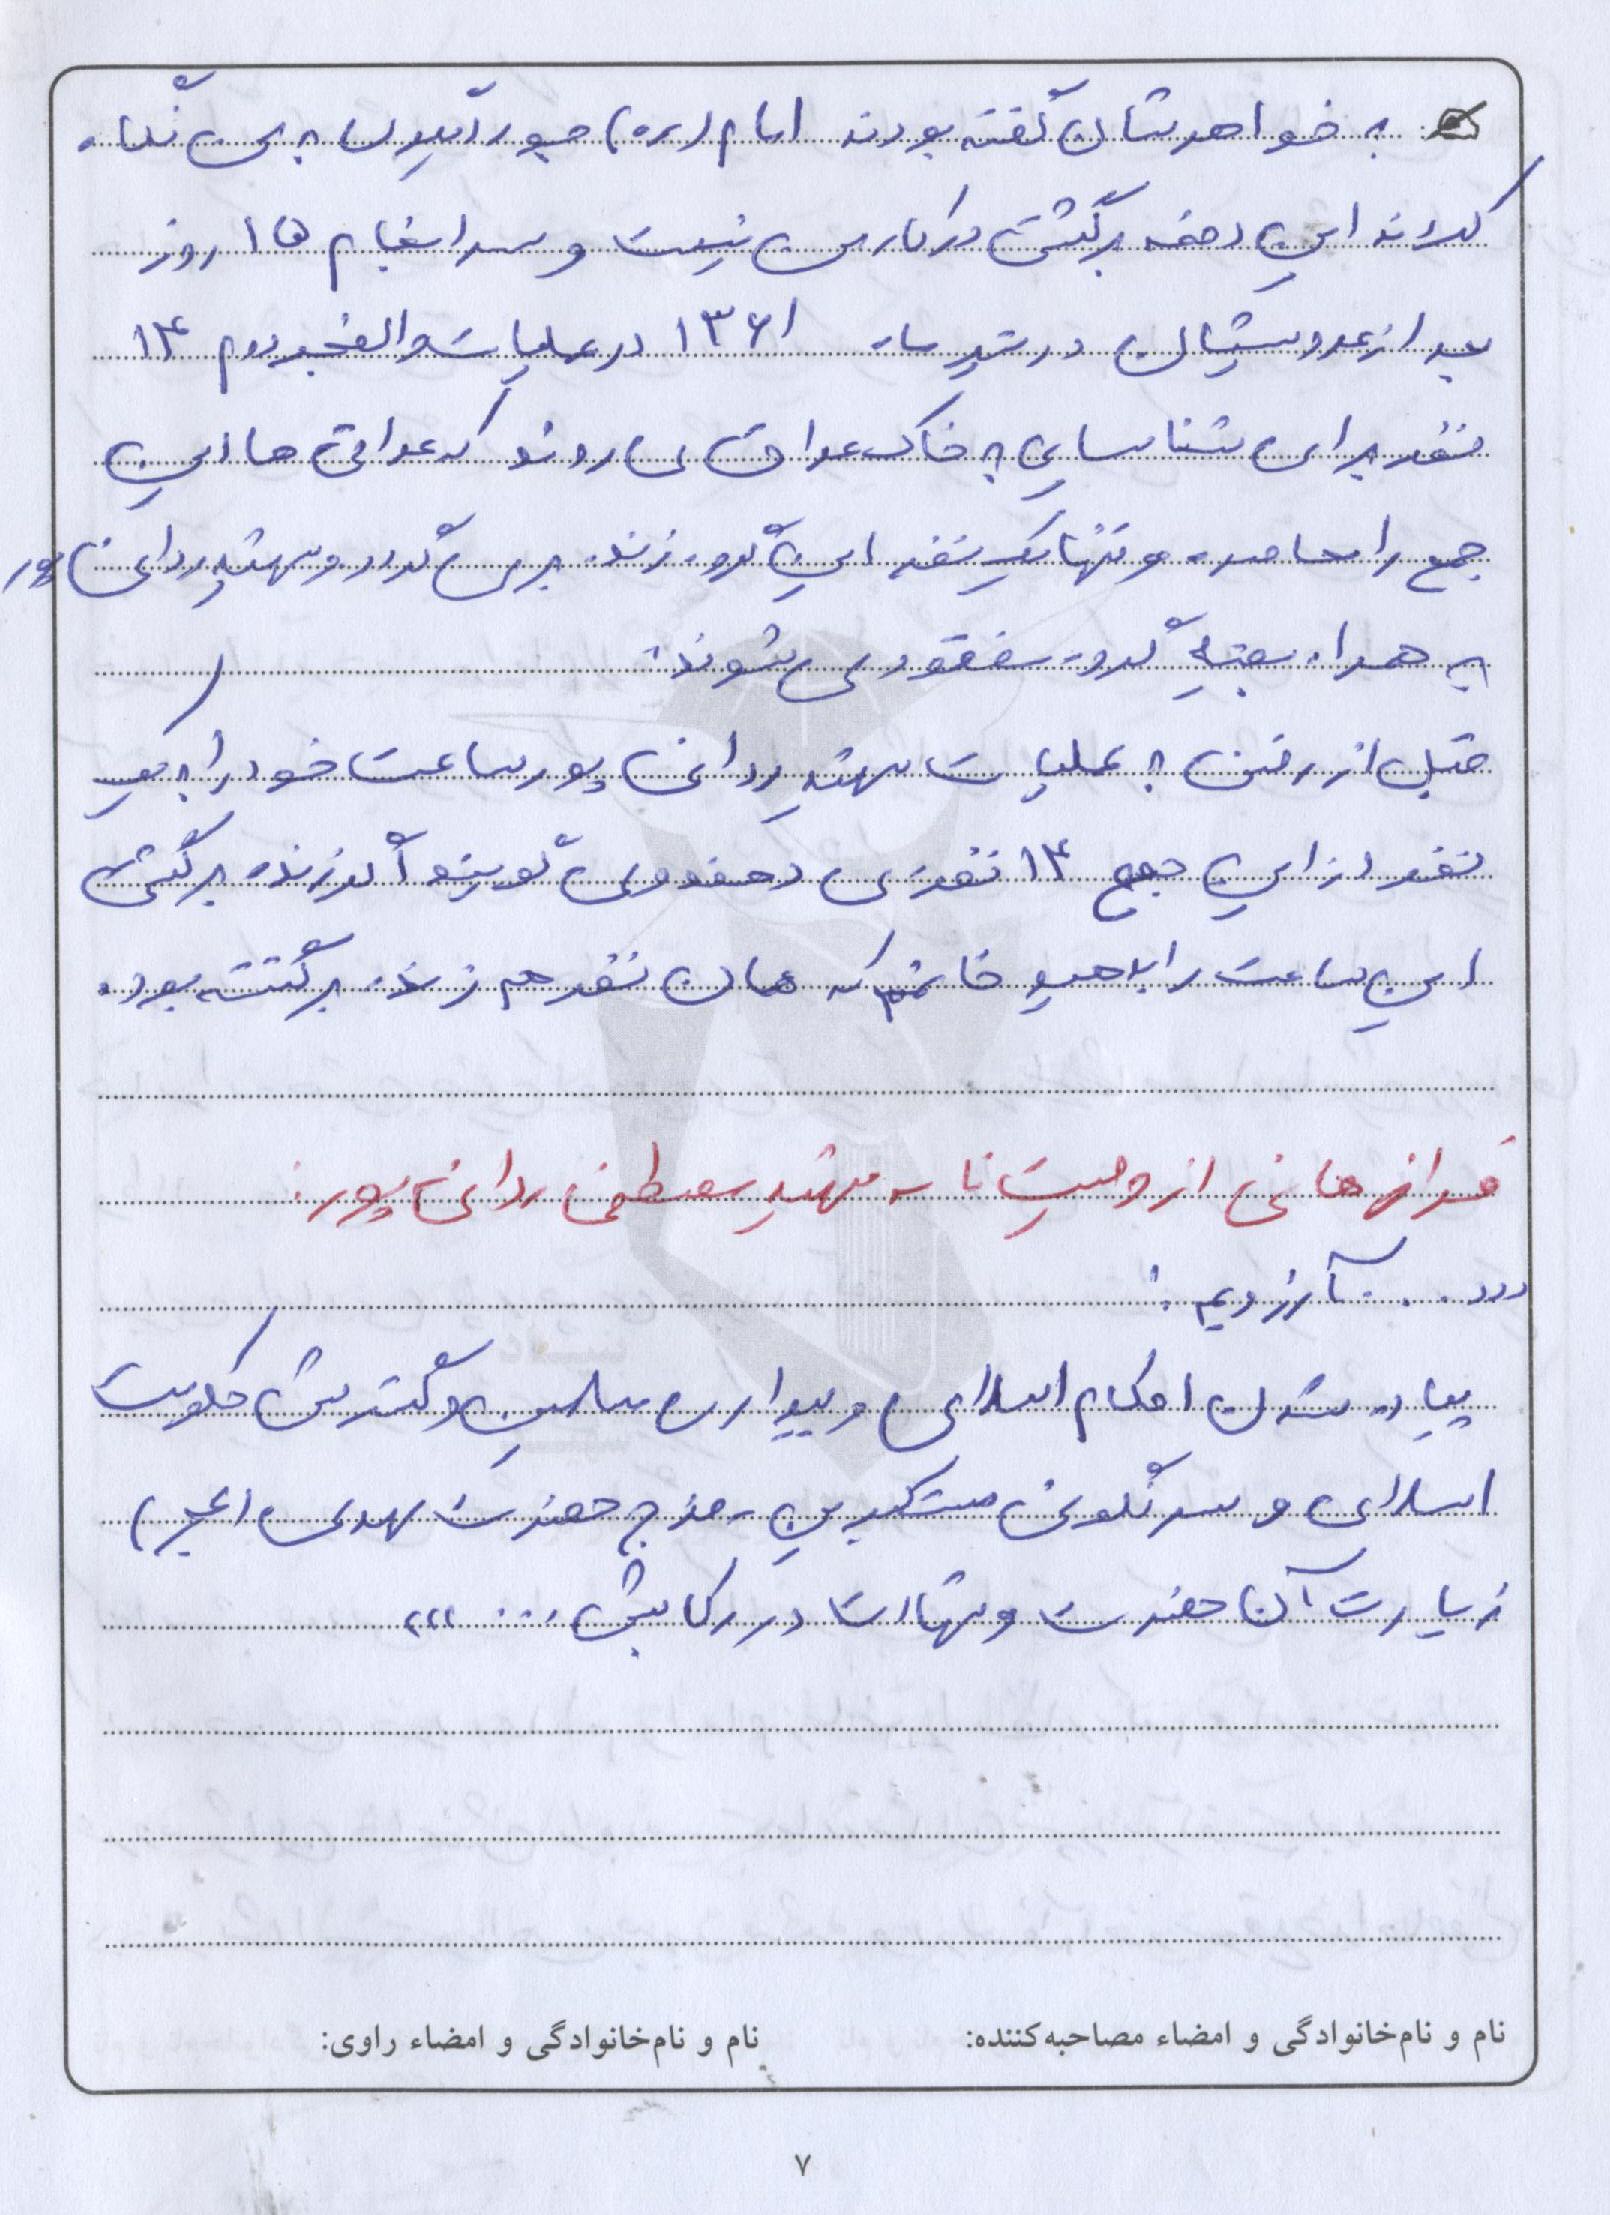 به خواهرشان گفته بودند امام (ره) جور دیگری به من نگاه
کردند این دفعه برگشتی در کار من نیست و سرانجام ۱۵ روز
بعد از عروسیشان در تیر ماه ۱۳۶۱ در عملیات والفجر دوم ۱۴
نفر برای شناسایی به خاک عراق می روند که عراقی ها این
جمع را محاصره و تنها یک نفر این گروه زنده بر می گردد و شهید ردانی پور
به همراه بقیه گروه مفقود می شوند.
قبل از رفتن به عملیات شهید ردانی پور ساعت خود را به یک
نفر از این جمع ۱۴ نفری دهند و می گویند اگر زنده برگشتی
این ساعت را بده به خانمم که همان نفر هم زنده برگشته بود.
فرازهائی از وصیت نامه شهید مصطفی ردانی پور:
... آرزویم:
پیاده شدن احکام اسلامی و بیداری مسلمین و گسترش حکومت
اسلامی و سرنگونی مستکبرین، خروج حضرت مهدی (عج)
زیارت آن حضرت و شهادت در رکابش ...،،،
نام و نام‌خانوادگی و امضاء مصاحبه‌کننده: نام و نام‌خانوادگی و امضاء راوی:
۷